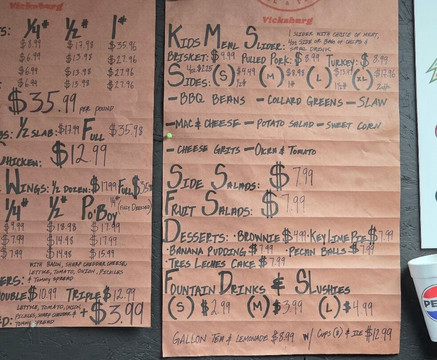 Vicksburg
1/4# 1/2# 1#
$17.98 $35.96
$6.99 $13.98 $27.96
$6.99 $13.98 $27.96
$6.99 $13.98 $27.96
$35.99 PER POUND
1/2 SLAB: $17.99 FULL $35.98
CHICKEN: $12.99
WINGS: 1/2 DOZEN: $17.99 FULL
1/4# 1/2# PO'BOY (FULLY DRESSED)
$9.99 $18.98 $17.99
$7.99 $14.98 $17.99
$7.99 $14.98 $15.99
WITH BACON, SHARP CHEDDAR CHEESE,
LETTUCE, TOMATO, ONION, PICKLES
& TOMMY SPREAD
DOUBLE $10.99 TRIPLE $12.99
LETTUCE, TOMATO, ONION,
PICKLES, SHARP CHEDDAR, & + $3.99
TOMMY SPREAD
Vicksburg
KIDS MEAL SLIDER: 1 SLIDER WITH CHOICE OF MEAT,
4oz SIDE OR BAG OF CHIPS &
SMALL DRINK.
BRISKET: $9.99 PULLED PORK: $8.99 TURKEY: $8.99
SIDES: 4oz $2.25 (S) $4.99 (M) $8.98 (L) (XL)
- BBQ BEANS - COLLARD GREENS - SLAW
- MAC & CHEESE - POTATO SALAD - SWEET CORN
- CHEESE GRITS - OKRA & TOMATO
SIDE SALADS: $7.99
FRUIT SALADS: $7.99
DESSERTS: · BROWNIE $4.99 · KEY LIME PIE $7.99
· BANANA PUDDING $7.99 · PECAN BALLS $7.99
· TRES LECHES CAKE $7.99
FOUNTAIN DRINKS & SLUSHIES
(S) $2.99 (M) $3.99 (L) $4.99
GALLON TEA & LEMONADE $8.99 w/ CUPS (8) & ICE $12.99